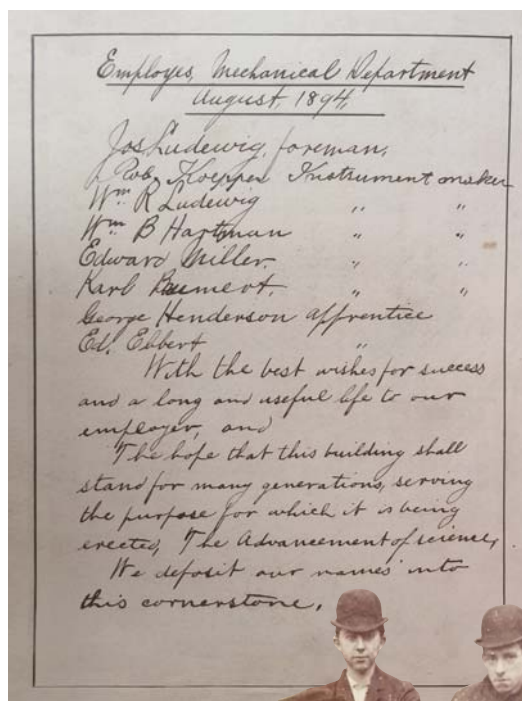 Employes, Mechanical Department
August, 1894,
Jos Ludewig, foreman,
Rob. Koeppen Instrument maker
Wm R Ludewig " "
Wm B Hartman " "
Edward Miller. " "
Karl Baumert. " "
George Henderson apprentice
Ed. Ebbert "
With the best wishes for success
and a long and useful life to our
employer, and
The hope that this building shall
stand for many generations, serving
the purpose for which it is being
erected, The Advancement of science,
We deposit our names into
this cornerstone.